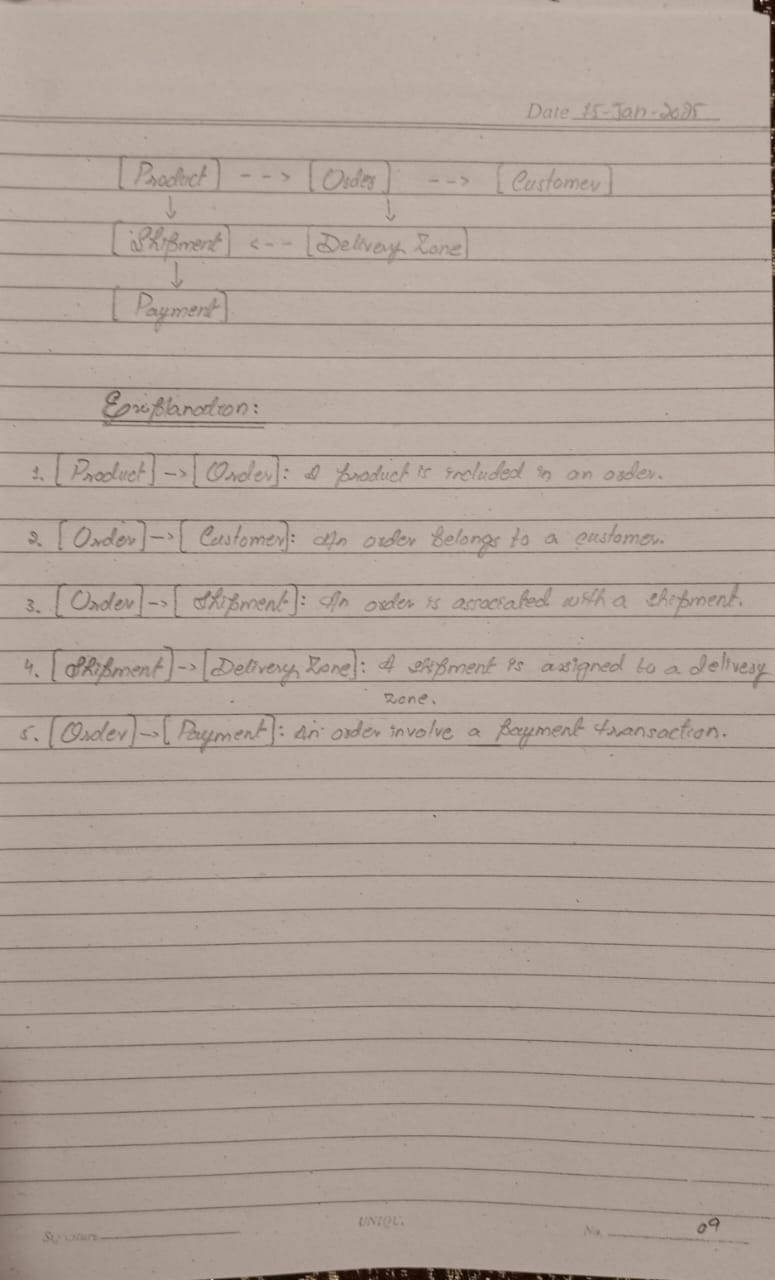 Date 15-Jan-2025
[Product] --> [Order] --> [Customer]
↓ ↓
[Shipment] <-- [Delivery Zone]
↓
[Payment]
Explanation:
1. [Product]-->[Order]: A product is included in an order.
2. [Order]-->[Customer]: An order belongs to a customer.
3. [Order]-->[Shipment]: An order is associated with a shipment.
4. [Shipment]-->[Delivery Zone]: A shipment is assigned to a delivery
zone.
5. [Order]-->[Payment]: An order involve a payment transaction.
UNIQUE
Signature No. 09